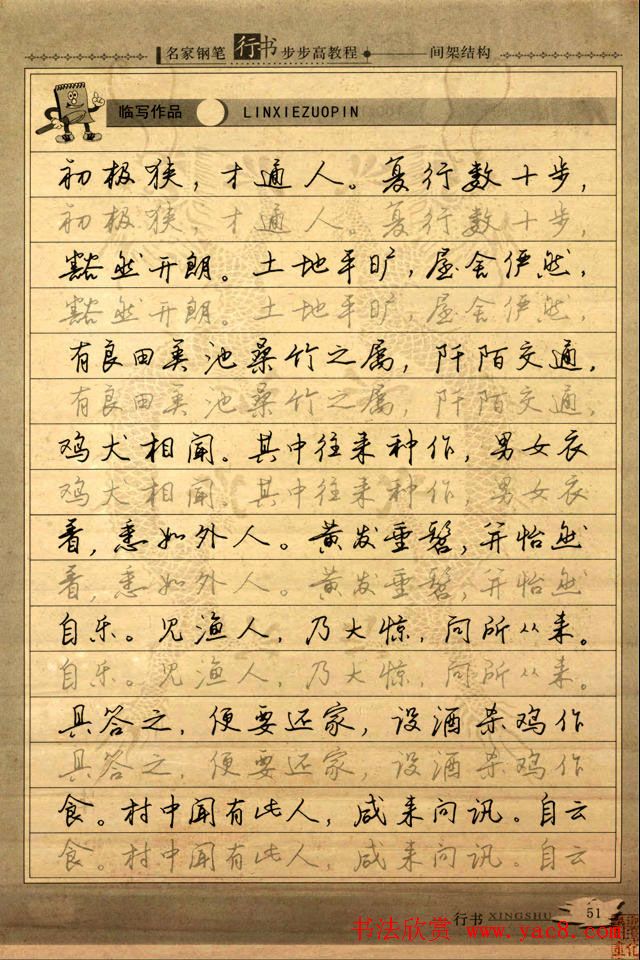 名家钢笔行书步步高教程 间架结构
临写作品 LINXIEZUOPIN
初极狭，才通人。复行数十步，
初极狭，才通人。复行数十步，
豁然开朗。土地平旷，屋舍俨然，
豁然开朗。土地平旷，屋舍俨然，
有良田美池桑竹之属，阡陌交通，
有良田美池桑竹之属，阡陌交通，
鸡犬相闻。其中往来种作，男女衣
鸡犬相闻。其中往来种作，男女衣
着，悉如外人。黄发垂髫，并怡然
着，悉如外人。黄发垂髫，并怡然
自乐。见渔人，乃大惊，问所从来。
自乐。见渔人，乃大惊，问所从来。
具答之，便要还家，设酒杀鸡作
具答之，便要还家，设酒杀鸡作
食。村中闻有此人，咸来问讯。自云
食。村中闻有此人，咸来问讯。自云
行书 XINGSHU 51
书法欣赏 www.yac8.com